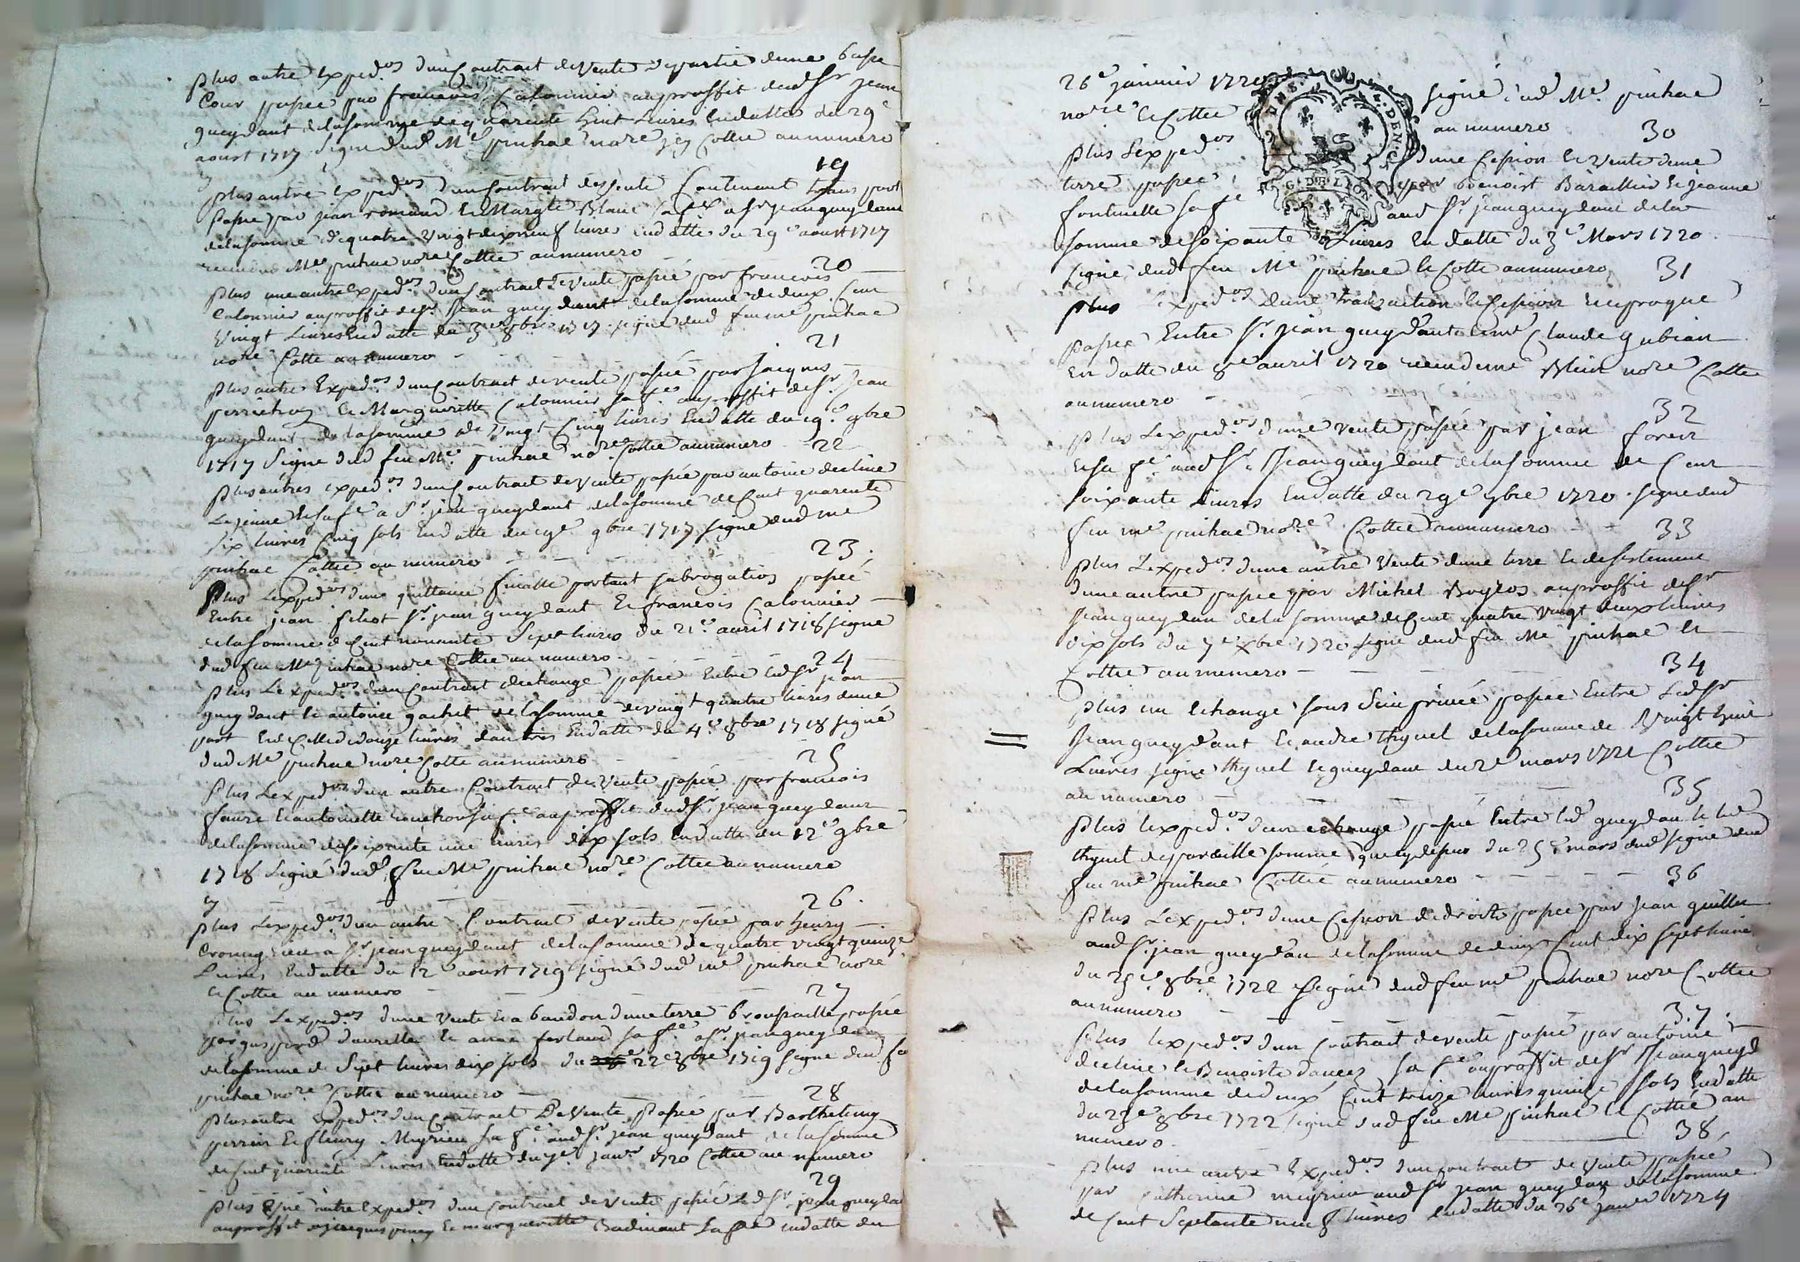 plus autre Exped.os d'un Contrat de Vente de partie d'une basse
Cour passée par francois Calonnier au proffit dudt Sr jean
gueydant de la somme de quarente huit Livres En datte du 29e
aoust 1717 signé dud Me pinhac nore Cotté au numero
19
plus autre Exped.os d'un Contrat de Vente Contenant
passé par jean romand Et Margte Blanc sa fe a Sr jean gueydant
de la somme de quatre vingt dix neuf livres En datte du 29e aoust 1717
Me pinhac nore Cotté au numero
20
plus une autre Exped.os d'un Contrat de Vente passé par francois
Calonnier au proffit de Sr Jean gueydant de la somme de deux Cent
Vingt Livres En datte du 3e 8bre 1717 signé dud feu me pinhac
nore Cotté au numero
21
plus autre Exped.os d'un Contrat de vente passée par Jaques
Et Margueritte Calonnier sa fe au proffit de Sr Jean
gueydant de la somme de Vingt Cinq livres En datte du 19e 9bre
1717 Signé dud feu Me pinhac nore Cotté au numero
22
plus autres exped.os d'un Contrat de Vente passé par antoine decline
Le jeune Et sa fe a Sr jean gueydant de la somme de Cent quarente
six livres Cinq sols En datte du 9bre 1717 signé dud me
pinhac Cotté au numero
23.
plus L'exped.os d'une quittance finalle portant subrogation passée
Entre jean Sr jean gueydant Et francois Calonnier
de la somme de Cent nonante Sept livres du 21e avril 1718 signé
dud feu Me pinhac nore Cotté au numero
24
plus L'exped.os d'un Contrat d'echange passée Entre led Sr jean
gueydant Et antoine gachet de la somme de vingt quatre livres d'une
part Et de Celle de douze livres d'autres En datte du 4e 8bre 1718 signé
dud Me pinhac nore Cotté au numero
25
plus L'exped.os d'un autre Contrat de Vente passé par francois
faure Et antoinette sa fe au proffit dud Sr jean gueydant
de la somme de soixante une livres dix sols En datte du 12e 9bre
1718 Signé dud feu Me pinhac nore Cotté au numero
26.
plus L'exped.os d'un autre Contrat de vente passé par henry
a Sr jean gueydant de la somme de quatre vingt quinze
Livres En datte du 12 aoust 1719 signé dud me pinhac nore
Et Cotté au numero
27
plus L'exped.os d'une vente Et abandon d'une terre broussaille passée
par gaspard Et anne ferland sa fe a Sr jean gueydant
de la somme de Sept livres dix sols du 22e 8bre 1719 signé dud feu
pinhac nore Cotté au numero
28
plus autre Exped.os d'un Contrat De Vente passé par Barthelemy
perrin Et fleury Meyrieu sa fe aud Sr jean gueydant de la somme
de Cent quarente Livres En datte du janr 1720 Cotté au numero
29
plus autre Exped.os d'un Contrat de Vente passée led Sr jean gueydan
au proffit a jacques Et margueritte Badinant sa fe En datte du
26e janvier 1720 signé dud Me pinhac
nore Et Cotté au numero
30
plus L'exped.os d'une Cession Et Vente d'une
terre passée par Benoist Baraillier Et Jeanne
fontenelle sa fe aud Sr jean gueydant de la
somme de soixante Livres En datte du 3e Mars 1720
signé dud feu Me pinhac Et Cotté au numero
31
plus L'exped.os d'une transaction Et Cession reciproque
passée Entre Sr jean gueydant Et me Claude gubian
En datte du 8e avril 1720 Blein nore Cotté
au numero
32
plus L'exped.os d'une vente passée par jean forest
Et sa fe aud Sr Jean gueydant de la somme de Cent
soixante Livres En datte du 29e 9bre 1720 signé dud
feu me pinhac nore Cotté au numero
33
plus L'exped.os d'une autre Vente d'une terre Et
d'une autre passée par Michel au proffit de Sr
Jean gueydan de la somme de Cent quatre vingt deux livres
dix sols du 7e Xbre 1720 signé dud feu Me pinhac Et
Cotté au numero
34
plus un Echange sous sein privée passée Entre Led Sr
Jean gueydant Et andre thynel de la somme de Vingt huit
Livres signé thynel Et gueydant du 2e mars 1721 Cotté
au numero
35
plus l'exped.os d'un echange passé Entre led gueydan Et led
thynel de pareille somme que dessus du 25e mars dud signé dud
feu me pinhac Cotté au numero
36
plus L'exped.os d'une Cession de droits passée par Jean guillen
aud Sr jean gueydan de la somme de deux Cent dix Sept livres
du 25e 8bre 1722 signé dud feu me pinhac nore Cotté
au numero
37.
plus l'exped.os d'un Contrat de vente passé par antoine
decline Et Benoiste sa fe au proffit de Sr Jean gueyd
de la somme de deux Cent treize livres quinze sols En datte
du 25e 8bre 1722 signé dud feu Me pinhac Et Cotté au
numero.
38.
plus une autre Exped.os d'un Contrat de Vente passée
par Catherine meyrieu aud Sr jean gueydan de la somme
de Cent Septante neuf livres En datte du 26e janv 1724